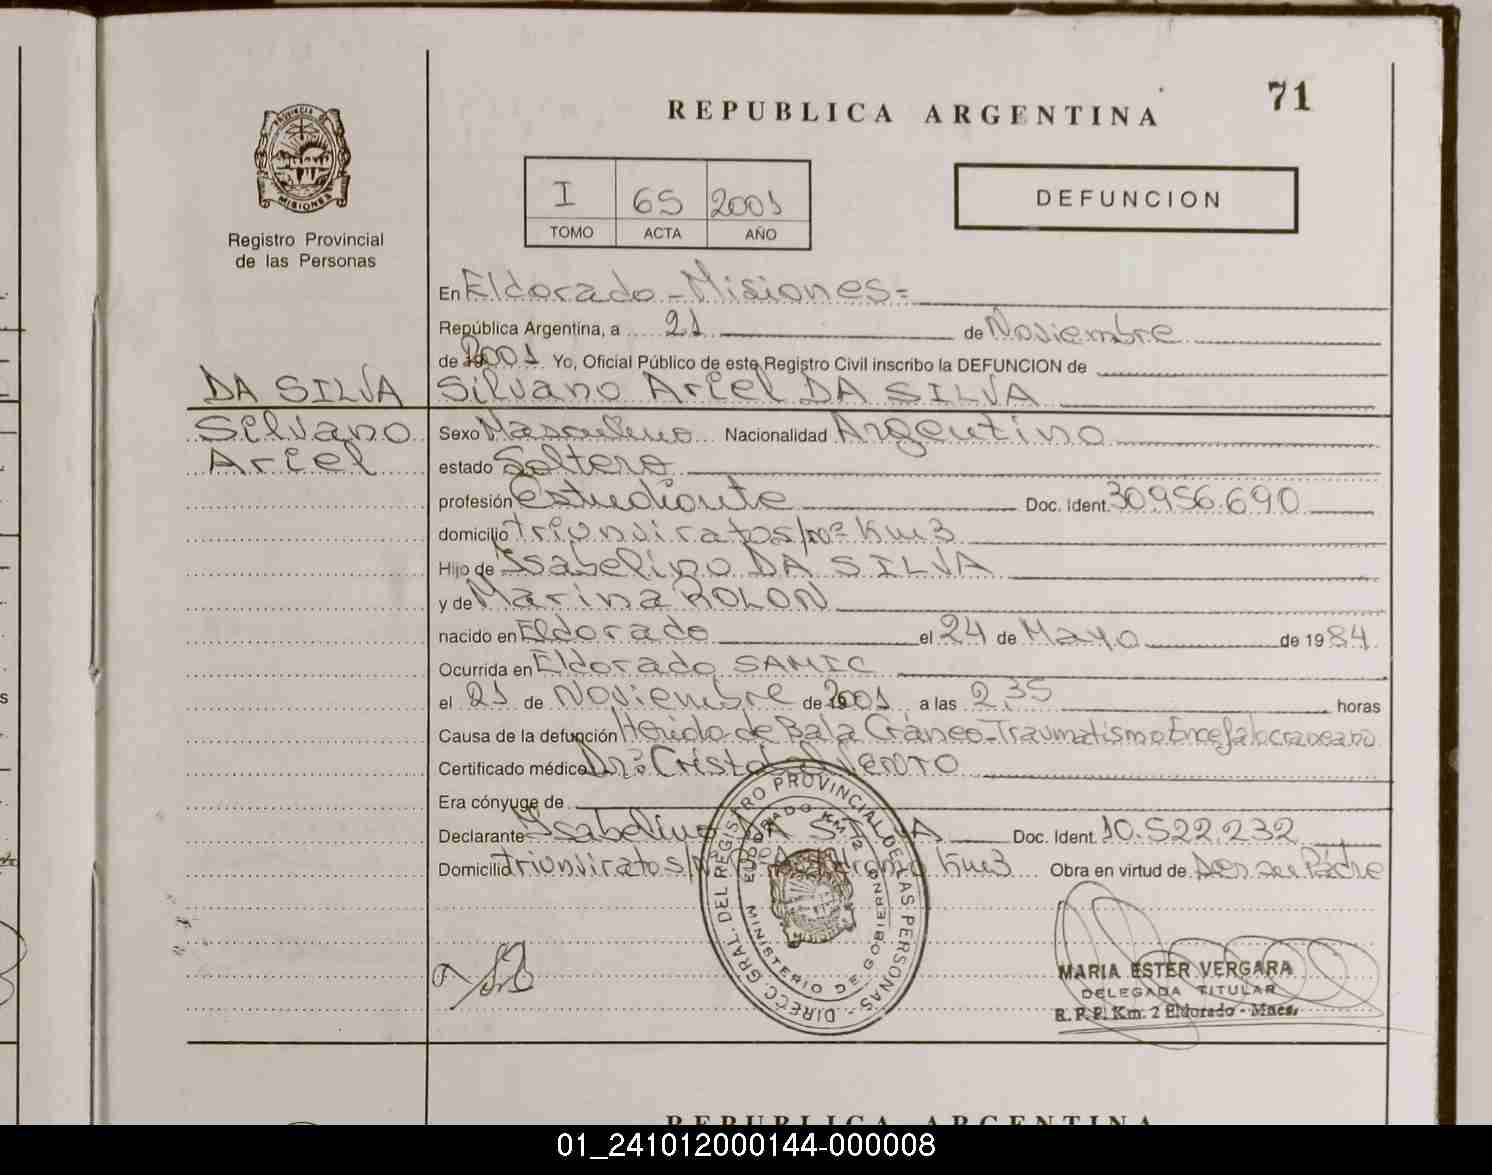 71
REPUBLICA ARGENTINA
PROVINCIA DE
MISIONES
Registro Provincial
de las Personas
I 65 2001
TOMO ACTA AÑO
DEFUNCION
En Eldorado - Misiones =
República Argentina, a 21 de Noviembre
de 2001 Yo, Oficial Público de este Registro Civil inscribo la DEFUNCION de
DA SILVA
Silvano
Ariel
Silvano Ariel DA SILVA
Sexo Masculino Nacionalidad Argentino
estado Soltero
profesión estudiante Doc. Ident. 30.956.690
domicilio triunvirato s/nº Km 3
Hijo de Isabelino DA SILVA
y de Marina ROLON
nacido en Eldorado el 24 de Mayo de 1984
Ocurrida en Eldorado SAMIC
el 21 de Noviembre de 2001 a las 2,35 horas
Causa de la defunción Herido de Bala Cráneo - Traumatismo Encefalocraneano
Certificado médico Dr: Cristol
Era cónyuge de
Declarante Isabelino DA SILVA Doc. Ident. 10.522.232
Domicilio triunvirato s/nº Km 3 Obra en virtud de ser su Padre
DIREC. GRAL. DEL REGISTRO PROVINCIAL DE LAS PERSONAS
ELDORADO KM. 2
MINISTERIO DE GOBIERNO
MARIA ESTER VERGARA
DELEGADA TITULAR
R. P. P. Km. 2 Eldorado - Mnes.
REPUBLICA ARGENTINA
01_241012000144-000008